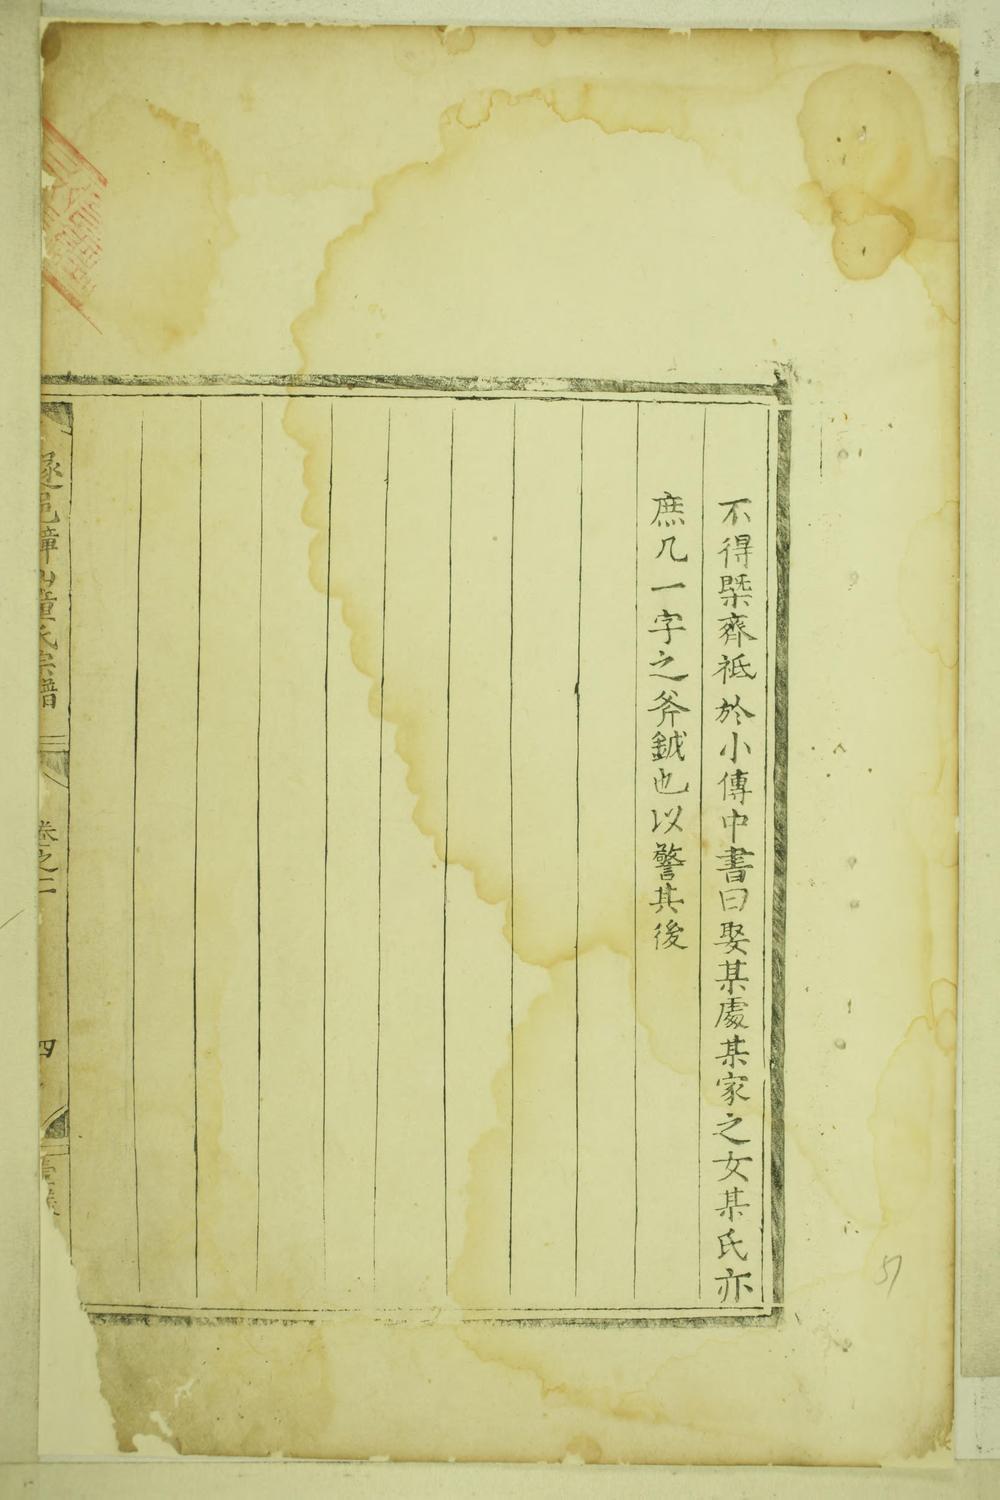 不得槩齊祗於小傳中書曰娶某處某家之女某氏亦
庶几一字之斧鉞也以警其後
遂邑璋山童氏宗譜
卷之二
四
51